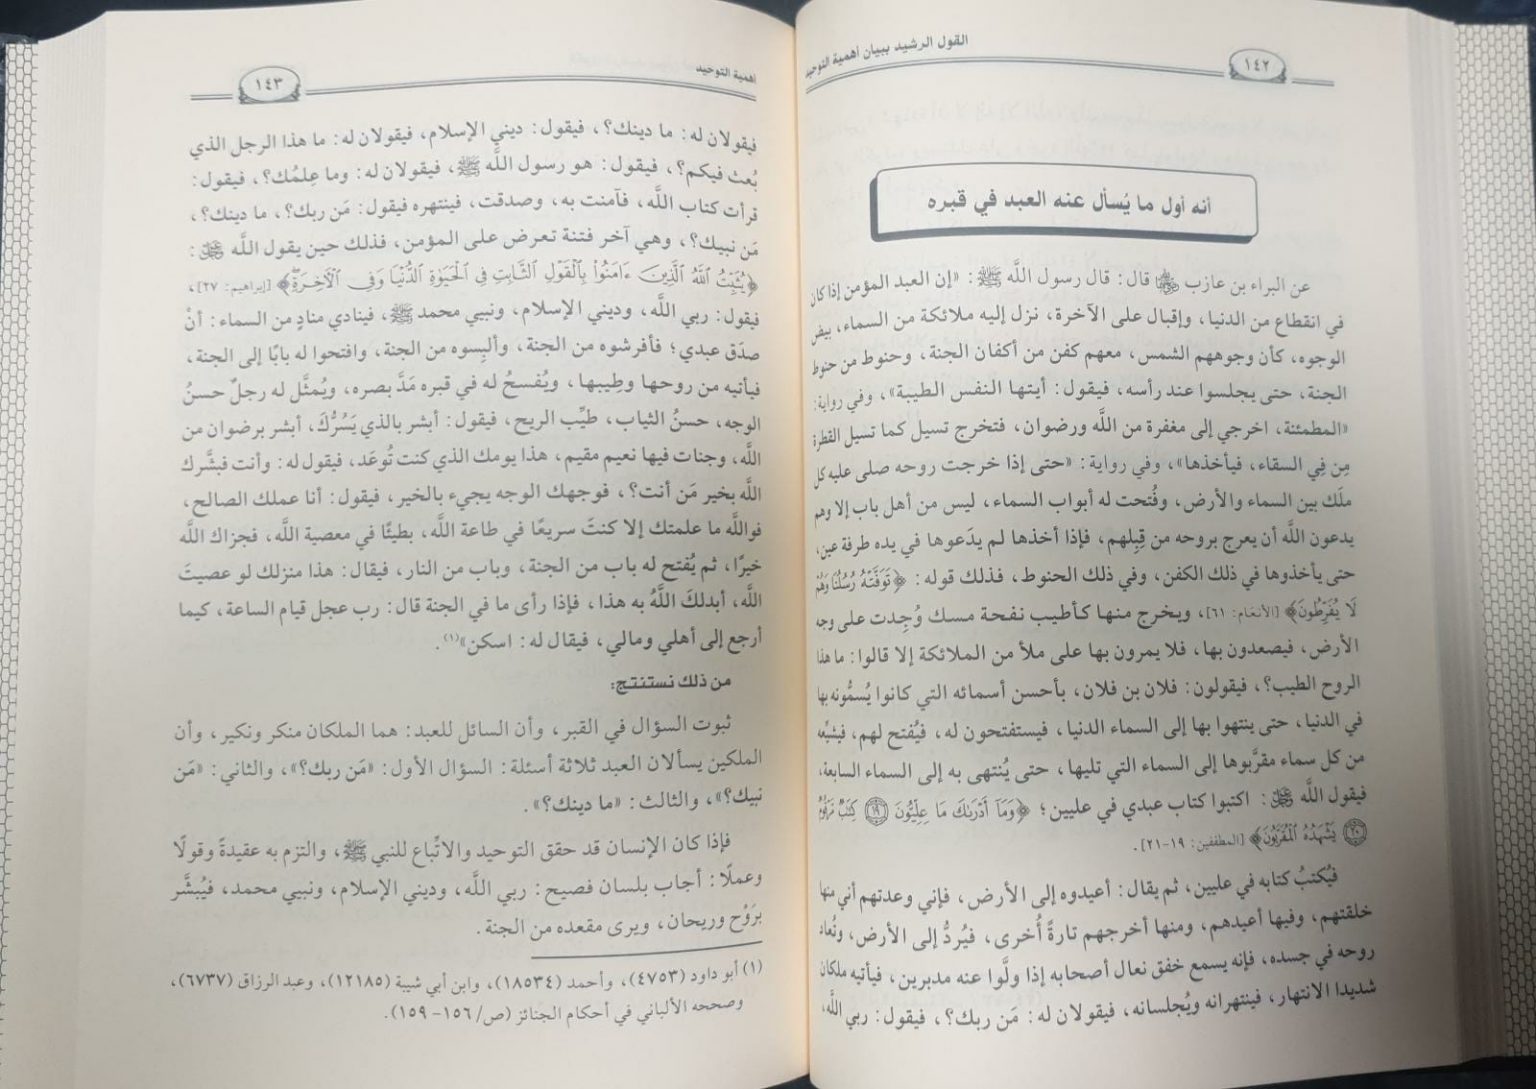 ١٤٢
القول الرشيد ببيان أهمية التوحيد
أنه أول ما يُسأل عنه العبد في قبره
عن البراء بن عازب ﷺ قال: قال رسول اللَّه ﷺ: «إن العبد المؤمن إذا كان
في انقطاع من الدنيا، وإقبال على الآخرة، نزل إليه ملائكة من السماء، بيض
الوجوه، كأن وجوههم الشمس، معهم كفن من أكفان الجنة، وحنوط من حنوط
الجنة، حتى يجلسوا عند رأسه، فيقول: أيتها النفس الطيبة»، وفي رواية:
«المطمئنة، اخرجي إلى مغفرة من اللَّه ورضوان، فتخرج تسيل كما تسيل القطرة
مِن فِي السقاء، فيأخذها»، وفي رواية: «حتى إذا خرجت روحه صلى عليه كل
ملَك بين السماء والأرض، وفُتحت له أبواب السماء، ليس من أهل باب إلا وهم
يدعون اللَّه أن يعرج بروحه من قِبلِهم، فإذا أخذها لم يدَعوها في يده طرفة عين،
حتى يأخذوها في ذلك الكفن، وفي ذلك الحنوط، فذلك قوله: ﴿تَوَفَّتْهُ رُسُلُنَا وَهُمْ
لَا يُفَرِّطُونَ﴾ [الأنعَام: ٦١]، ويخرج منها كأطيب نفحة مسك وُجِدت على وجه
الأرض، فيصعدون بها، فلا يمرون بها على ملأ من الملائكة إلا قالوا: ما هذا
الروح الطيب؟، فيقولون: فلان بن فلان، بأحسن أسمائه التي كانوا يُسمُّونه بها
في الدنيا، حتى ينتهوا بها إلى السماء الدنيا، فيستفتحون له، فيُفتح لهم، فيشيِّعه
من كل سماء مقرَّبوها إلى السماء التي تليها، حتى يُنتهى به إلى السماء السابعة،
فيقول اللَّه ﷻ: اكتبوا كتاب عبدي في عليين؛ ﴿وَمَآ أَدْرَىٰكَ مَا عِلِّيُّونَ ۝١٩ كِتَٰبٌ مَّرْقُومٌ
۝٢٠ يَشْهَدُهُ ٱلْمُقَرَّبُونَ﴾ [المطففين: ١٩-٢١].
فيُكتبُ كتابه في عليين، ثم يقال: أعيدوه إلى الأرض، فإني وعدتهم أني منها
خلقتهم، وفيها أعيدهم، ومنها أخرجهم تارةً أُخرى، فيُردُّ إلى الأرض، وتُعاد
روحه في جسده، فإنه يسمع خفق نعال أصحابه إذا ولَّوا عنه مدبرين، فيأتيه ملكان
شديدا الانتهار، فينتهرانه ويُجلسانه، فيقولان له: مَن ربك؟، فيقول: ربي اللَّه،
أهمية التوحيد
١٤٣
فيقولان له: ما دينك؟، فيقول: ديني الإسلام، فيقولان له: ما هذا الرجل الذي
بُعث فيكم؟، فيقول: هو رسول اللَّه ﷺ، فيقولان له: وما عِلمُك؟، فيقول:
قرأت كتاب اللَّه، فآمنت به، وصدقت، فينتهره فيقول: مَن ربك؟، ما دينك؟،
مَن نبيك؟، وهي آخر فتنة تعرض على المؤمن، فذلك حين يقول اللَّه ﷻ:
﴿يُثَبِّتُ ٱللَّهُ ٱلَّذِينَ ءَامَنُواْ بِٱلْقَوْلِ ٱلثَّابِتِ فِى ٱلْحَيَوٰةِ ٱلدُّنْيَا وَفِى ٱلْأَخِرَةِ﴾ [إبراهيم: ٢٧]،
فيقول: ربي اللَّه، وديني الإسلام، ونبيي محمد ﷺ، فينادي منادٍ من السماء: أنْ
صدَق عبدي؛ فأفرشوه من الجنة، وألبِسوه من الجنة، وافتحوا له بابًا إلى الجنة،
فيأتيه من روحها وطِيبها، ويُفسحُ له في قبره مَدَّ بصره، ويُمثَّل له رجلٌ حسنُ
الوجه، حسنُ الثياب، طيِّب الريح، فيقول: أبشر بالذي يَسُرُّكَ، أبشر برضوان من
اللَّه، وجنات فيها نعيم مقيم، هذا يومك الذي كنت تُوعَد، فيقول له: وأنت فبشَّرك
اللَّه بخير مَن أنت؟، فوجهك الوجه يجيء بالخير، فيقول: أنا عملك الصالح،
فواللَّه ما علمتك إلا كنتَ سريعًا في طاعة اللَّه، بطيئًا في معصية اللَّه، فجزاك اللَّه
خيرًا، ثم يُفتح له باب من الجنة، وباب من النار، فيقال: هذا منزلك لو عصيتَ
اللَّه، أبدلكَ اللَّهُ به هذا، فإذا رأى ما في الجنة قال: رب عجل قيام الساعة، كيما
أرجع إلى أهلي ومالي، فيقال له: اسكن»(١).
من ذلك نستنتج:
ثبوت السؤال في القبر، وأن السائل للعبد: هما الملكان منكر ونكير، وأن
الملكين يسألان العبد ثلاثة أسئلة: السؤال الأول: «مَن ربك؟»، والثاني: «مَن
نبيك؟»، والثالث: «ما دينك؟».
فإذا كان الإنسان قد حقق التوحيد والاتِّباع للنبي ﷺ، والتزم به عقيدةً وقولًا
وعملًا: أجاب بلسان فصيح: ربي اللَّه، وديني الإسلام، ونبيي محمد، فيُبشَّر
برَوْح وريحان، ويرى مقعده من الجنة.
(١) أبو داود (٤٧٥٣)، وأحمد (١٨٥٣٤)، وابن أبي شيبة (١٢١٨٥)، وعبد الرزاق (٦٧٣٧)،
وصححه الألباني في أحكام الجنائز (ص/ ١٥٦- ١٥٩).